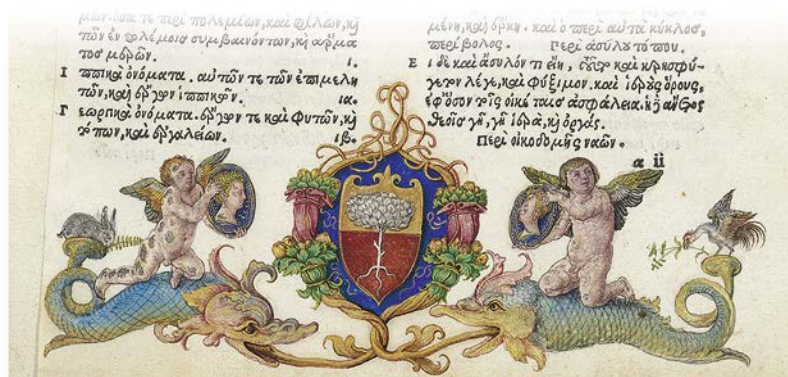 μων. ὅσα τε περὶ πολεμέων, καὶ φίλων, καὶ
τῶν ἐν πολέμοις συμβαινόντων, καὶ ἅρμα
τος μορῶν. ι.
Ι ππικὰ ὀνόματα. αὐτῶν τε τῶν ἐπιμελη
τῶν, καὶ ὀργάνων ἱππικῶν. ια.
Γ εωργικὰ ὀνόματα. ὀργάνων τε καὶ φυτῶν, καὶ
τόπων, καὶ ἐργαλείων. ιβ.
μένη, καὶ καὶ ὁ περὶ αὐτὰ κύκλος,
περίβολος. Περὶ ἀσύλου τόπου.
Ε ἰ δὲ καὶ ἄσυλόν τι εἴη, καὶ κρησφύ-
γετον λέγε, καὶ φύξιμον. καὶ ὅρους,
ἐφ' ὅσον τοῖς οἰκέταις ἀσφάλεια. ἡ ἄνετος
θεοῖς γῆ, γῆ ἱερὰ, καὶ ὀργάς.
Περὶ οἰκοδομῆς ναῶν.
a ii